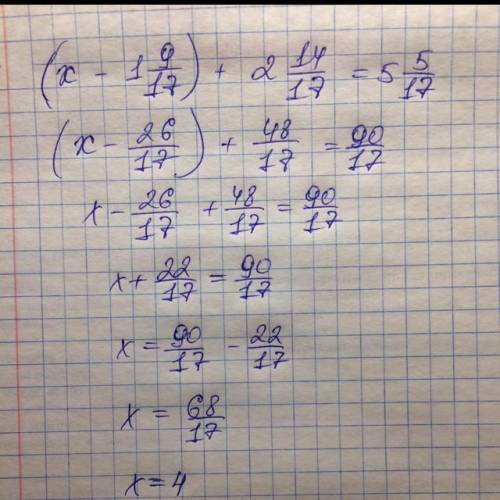 (x - 1 9/17) + 2 14/17 = 5 5/17
(x - 26/17) + 48/17 = 90/17
x - 26/17 + 48/17 = 90/17
x + 22/17 = 90/17
x = 90/17 - 22/17
x = 68/17
x = 4